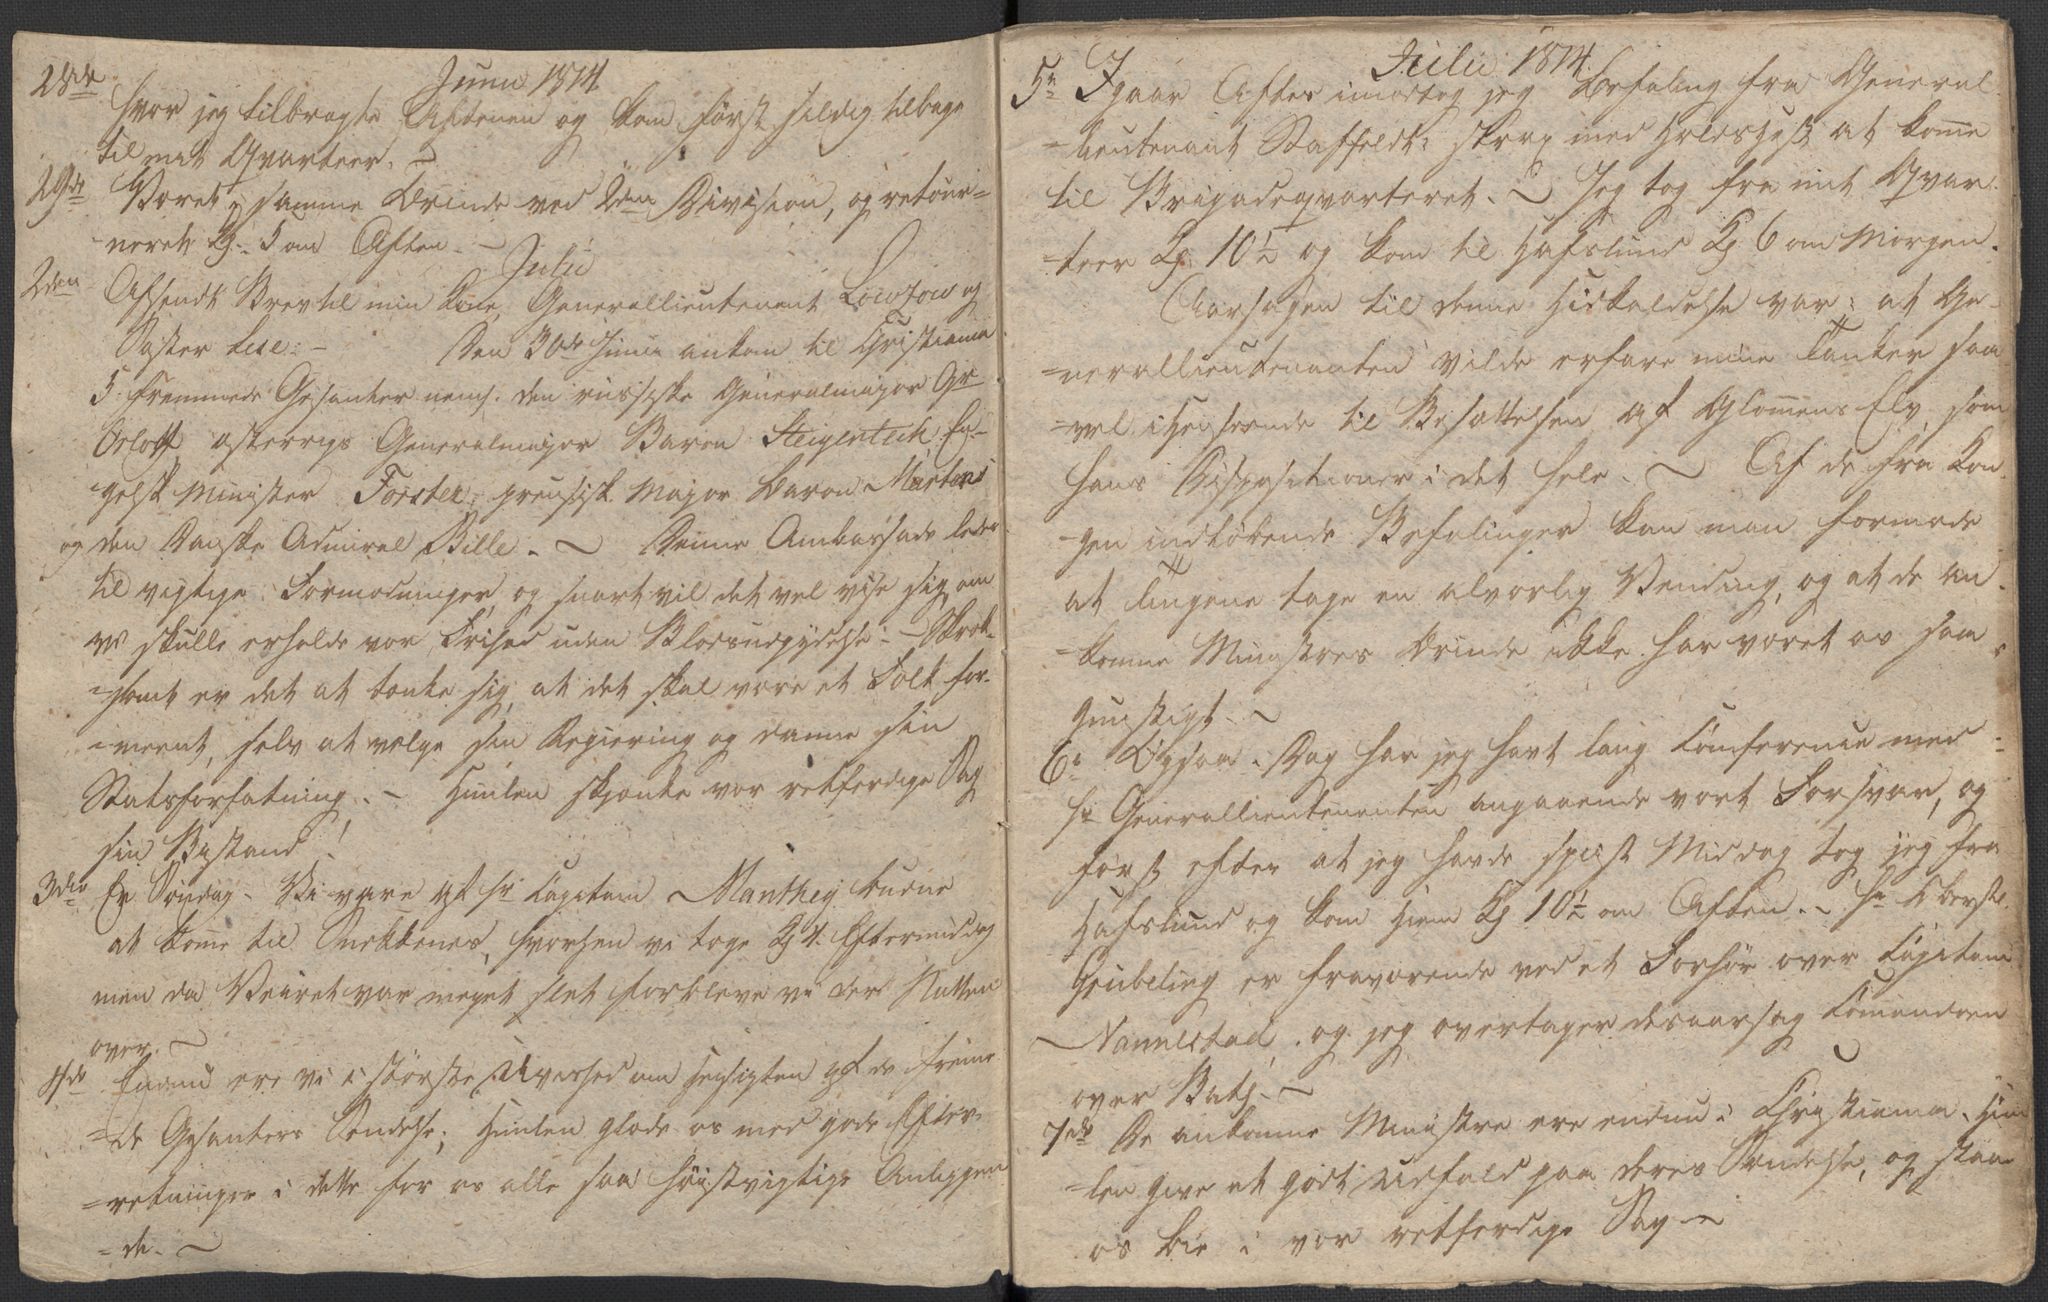 Junii 1814
28de hvor jeg tilbragte Aftenen og kom først sildig tilbage
til mit Qvarteer. –
29de Været i samme Ærinde ved 2den Division, og retour-
-neret Kl. 5 om Aften. –
Julii
2den Afsendt Brev til min Kone, Generallieutenant Lowzow og
Søster Lise. – Den 30de Junii ankom til Christiania
5 fremmede Gesanter nemh. den russiske Generalmajor Gr
Orloff, østerrigs Generalmajor Baron Steigentech, En-
gelsk Minister Forster, preusisk Major Baron Martens
og den Danske Admiral Bille. – Denne Ambassade leder
til vigtige Formodninger, og snart vil det vel vise sig, om
vi skulle erholde vor Frihed uden Blodsudgydelse. – Skræk-
=somt er det at tænke sig, at det skal være et Folk for-
=meent, selv at vælge sin Regiering og danne sin
Statsforfatning. – Himlen skjænke vor retfærdige Sag
sin Bistand!
3die En Søndag. Vi vare af Hr Capitain Manthey budne
at kome til Snekkenes, hvorhen vi toge Kl 4 Eftermiddag
men da Veiret var meget slet forbleve vi der Natten
over. –
4de Endnu ere vi i største Uvished om Hensigten af de frem-
=de Gesanters Sendelse; Himlen glæde os med gode Efter-
=retninger i dette for os alle saa høistvigtige Anliggen
=de. –
Julii 1814.
5te Igaar Aftes imodtog jeg Befaling fra General
=lieutenant Staffeldt: strax med Holdshest at kome
til Brigadeqvarteret. – Jeg tog fra mit Qvar-
=teer Kl. 10½ og kom til Hafslund Kl 6 om Morgen.
Aarsagen til denne Hidkaldelse var: at Ge-
=nerallieutenanten vilde erfare mine Tanker saa
=vel i Henseende til Besættelsen af Glomens Elv, som
hans Dispositioner i det hele. – Af de fra Kon
-gen indløbende Befalinger kan man formode
at Tingene tage en alvorlig Vending, og at de an-
=komne Ministres Ærinde ikke har været os saa
gunstigt. –
6te Ogsaa i Dag har jeg havt lang Conference med
Hr Generallieutenanten angaaende vort Forsvar, og
først efter at jeg havde spiist Middag tog jeg fra
Hafslund og kom hiem Kl 10½ om Aften. – Hr Oberstl.
Grubeling er fraværende ved et Forhør over Capitain
Nannestad, og jeg overtager desaarsag Comandoen
over Bat: –
7de De ankomne Ministre ere endnu i Christiania. Him
=len give et godt Udfald paa deres Sendelse, og staae
os bie i vor retfærdige Sag –